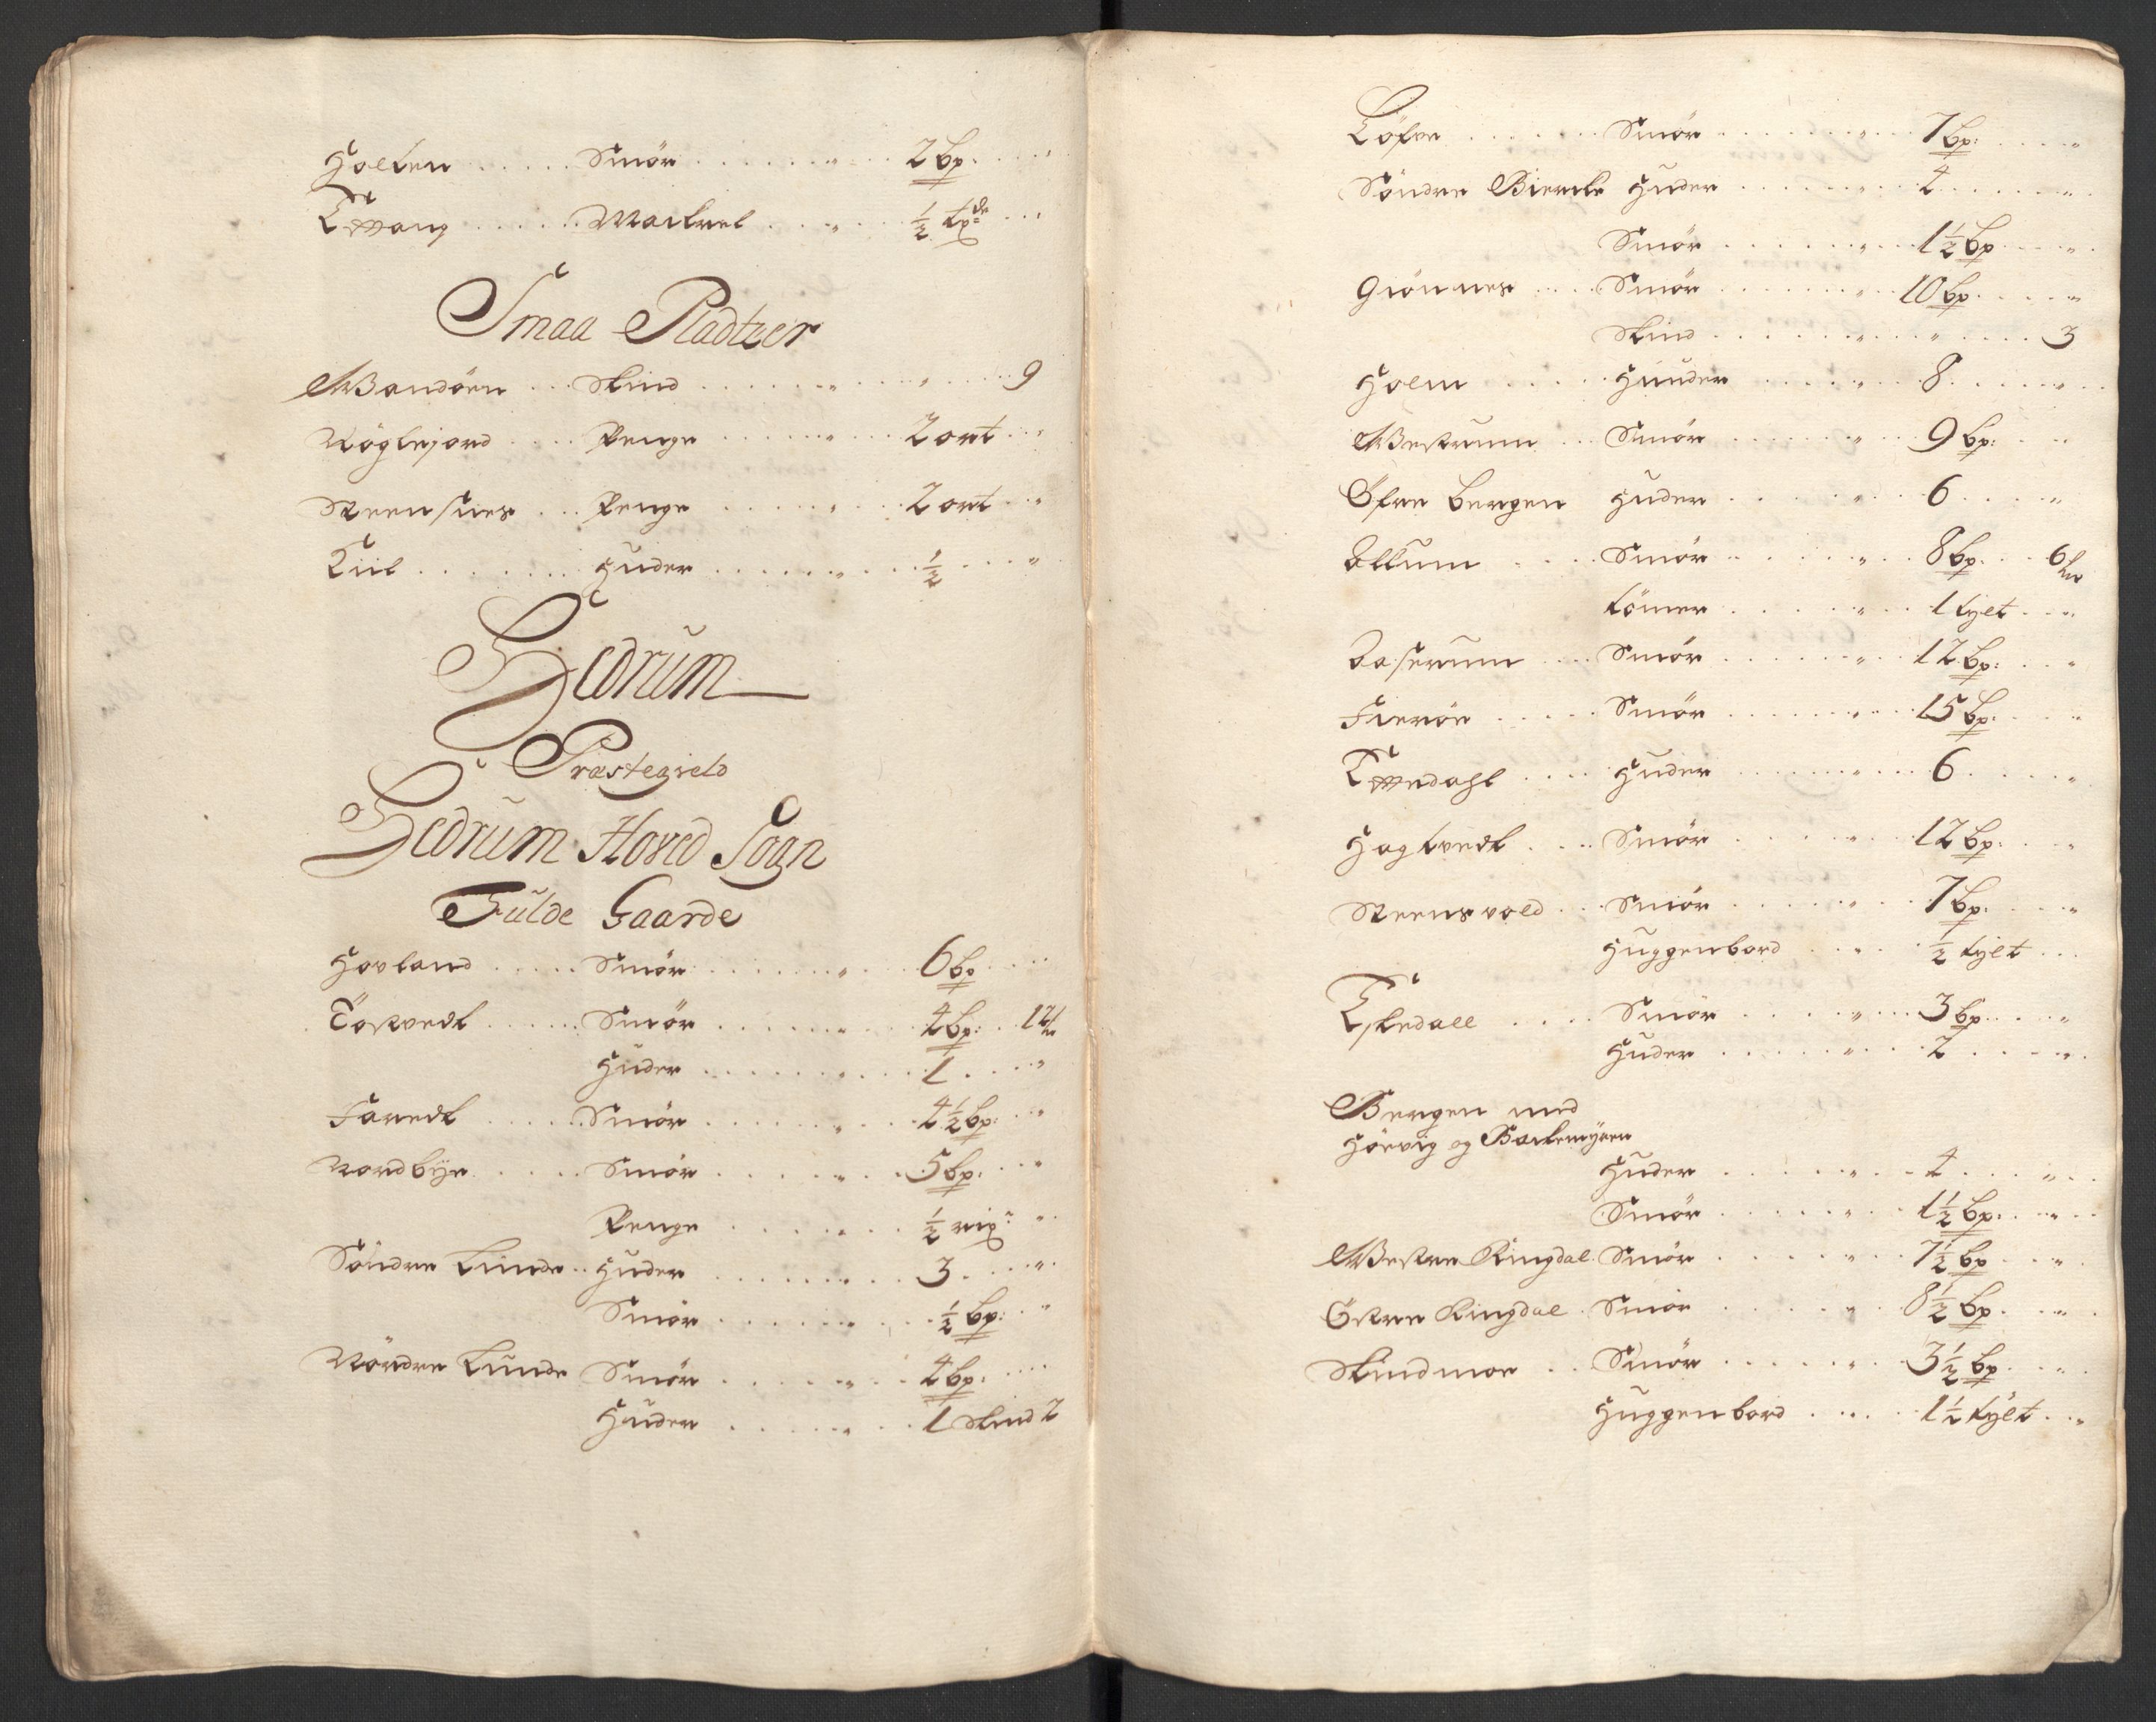 Holten ..... Smör ...... „ .. 2 bp. .. „
Tvang ..... Mackrel ... „ .. ½ tde ...
Smaa Pladtzer
Wandöen ... Skind ...... „ ... „ ... 9
Nöglejord .... Penge ..... „ ... 2 ort ..
Steensnes ... Penge ..... „ ... 2 ort .. „
Tiil ....... Huder ..... „ ... ½ ... „
Hedrum
Præstegield
Hedrum Hoved Sogn
Fulde Gaarde
Hovland ..... Smör ...... „ ... 6 bp ....
Tostvedt ..... Smör ...... „ ... 4 bp: .. 12
Huder ...... „ ... 1 ... „
Faredt ..... Smör ..... „ ... 4½ bp: .. „
Nordbÿe ..... Smör ..... „ .. 5 bp. .. „
Penge ...... ½ rix: ..
Söndre Linde .. Huder ...... „ .. 3 ... „
Smör ...... „ ... ½ bp: .. „
Nördre Lunde Smör ..... „ .. 4 bp. ...
Huder ..... „ .. 1 Skind 2
Töfve ...... Smör ...... „ ... 7 bp: .... „
Söndre Biercke Huder ...... „ .. 4 ..... „
Smör ...... „ .. 1½ bp .... „
Giönnes .... Smör ...... „ .. 10 bp ..... „
Skind ...... „ ... „ .... 3
Holm ..... Huuder ..... „ .. 8 ..... „
Westrum ... Smör ...... „ ... 9 bp: ...
Öfre Bergen Huder ..... „ .. 6 .... „
Allum .... Smör ..... „ .. 8 bp. .. 6
tömer ..... „ .. 1 tylt .. „
Aaserum ... Smör ..... „ .. 12 bp: .. „
Fieröe ..... Smör ..... „ ... 15 bp: .. „
Tvedahl .... Huder ..... „ ... 6 .... „
Hagtvedt ... Smör .... „ ... 12 bp: .. „
Steensvold ... Smör ..... „ ... 7 bp. ... „
Huggenbord .. „ .. ½ tylt ...
Eskedall .... Smör .... „ ... 3 bp .... „
Huder ..... „ ... 2 .... „
Bergen med
Höevig og Backemÿren
Huder ..... „ .. 4 ... „
Smör ..... „ .. 1½ bp. ... „
Westre Ringdal. Smör .... „ .. 7½ bp .. „
Östre Ringdal . Smör .... „ .. 8½ bp. .. „
Skindmoe .. Smör ..... „ ... 3½ bp .. „
Huggenbord ..... 1½ tylt .. „